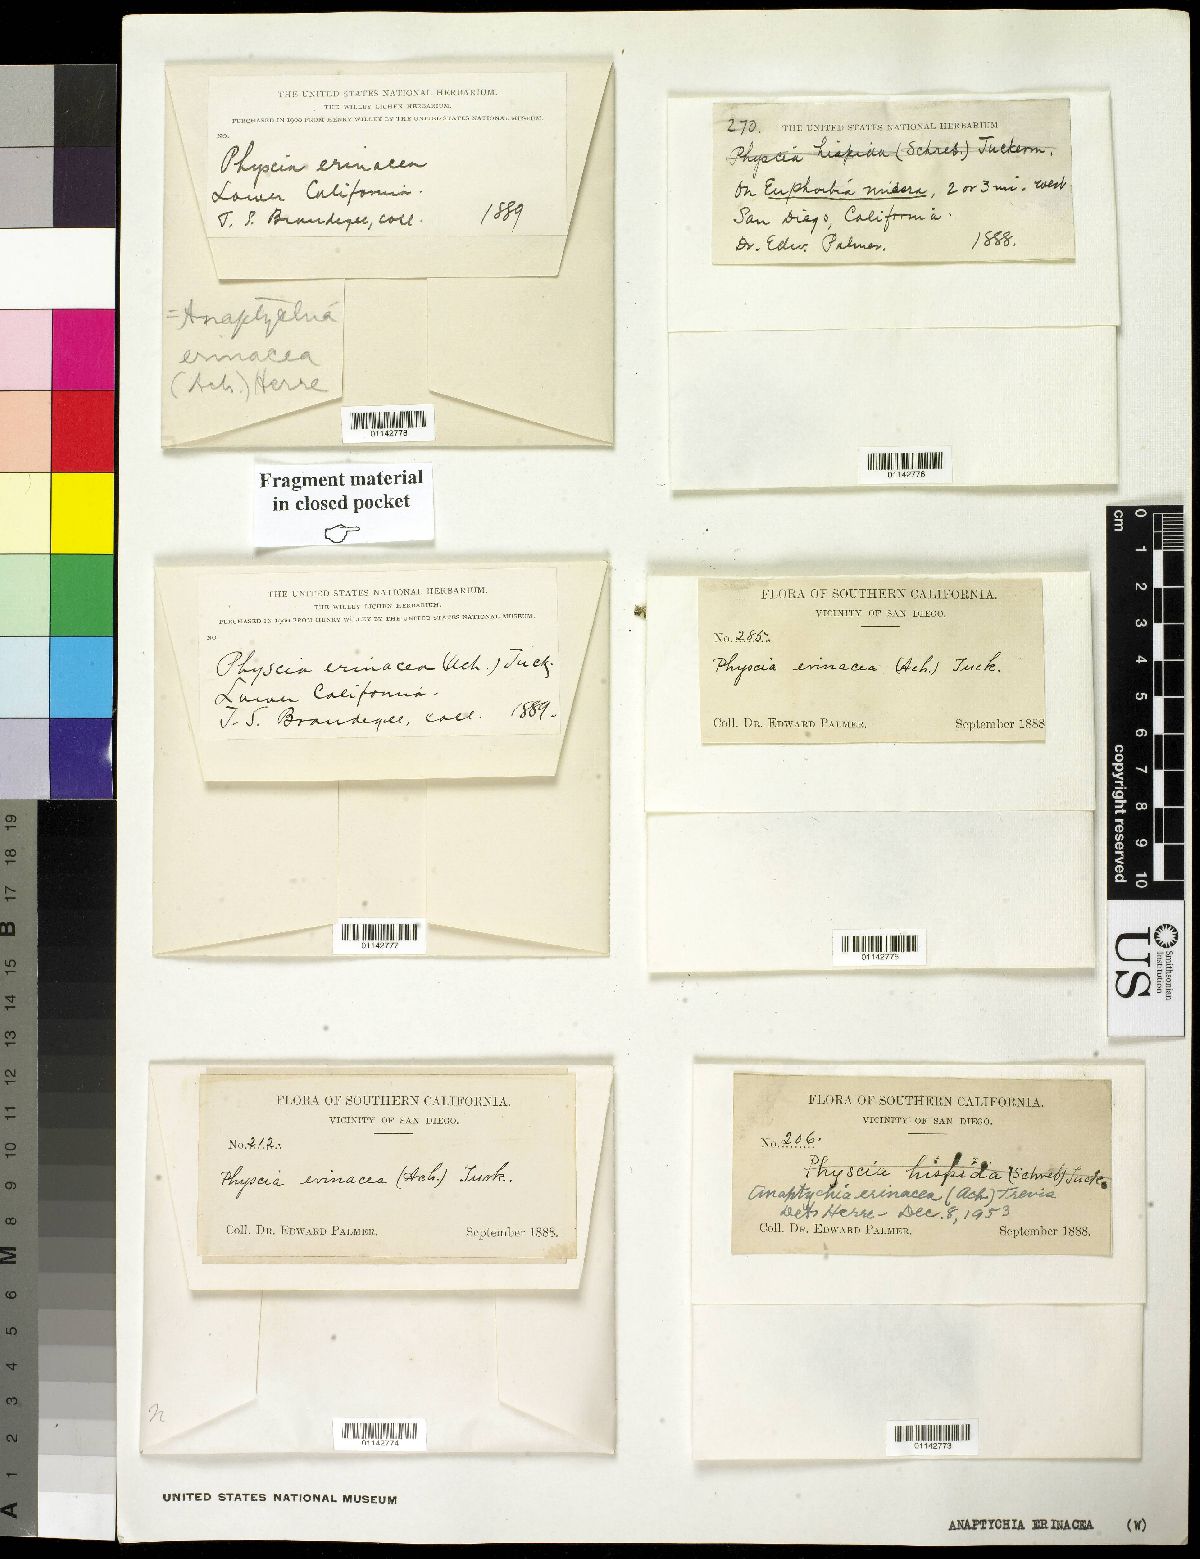 THE UNITED STATES NATIONAL HERBARIUM.
THE WILLEY LICHEN HERBARIUM.
PURCHASED IN 1900 FROM HENRY WILLEY BY THE UNITED STATES NATIONAL MUSEUM.
NO.
Physcia erinacea
Lower California.
T. S. Brandegee, coll. 1889
=Anaptychia
erinacea
(Ach.) Herre
01142778
Fragment material
in closed pocket
270. THE UNITED STATES NATIONAL HERBARIUM
Physcia hispida (Schreb.) Tuckerm.
On Euphorbia misera, 2 or 3 mi. west
San Diego, California.
Dr. Edw. Palmer. 1888.
01142776
THE UNITED STATES NATIONAL HERBARIUM.
THE WILLEY LICHEN HERBARIUM.
PURCHASED IN 1900 FROM HENRY WILLEY BY THE UNITED STATES NATIONAL MUSEUM.
NO
Physcia erinacea (Ach.) Tuck.
Lower California.
T. S. Brandegee, coll. 1889.
01142777
FLORA OF SOUTHERN CALIFORNIA.
VICINITY OF SAN DIEGO.
No. 285.
Physcia erinacea (Ach.) Tuck.
Coll. DR. EDWARD PALMER. September 1888
01142775
FLORA OF SOUTHERN CALIFORNIA.
VICINITY OF SAN DIEGO.
No. 212.
Physcia erinacea (Ach.) Tuck.
Coll. DR. EDWARD PALMER. September 1888.
01142774
FLORA OF SOUTHERN CALIFORNIA.
VICINITY OF SAN DIEGO.
No. 206.
Physcia hispida (Schreb) Tuck.
Anaptychia erinacea (Ach.) Trevis
Det. Herre - Dec. 8, 1953
Coll. DR. EDWARD PALMER. September 1888.
01142773
UNITED STATES NATIONAL MUSEUM
ANAPTYCHIA ERINACEA (W)
0 1 2 3 4 5 6 7 8 9 10
cm
copyright reserved
US
Smithsonian
Institution
A 1 2 3 4 5 6 M 8 9 10 11 12 13 14 15 B 17 18 19